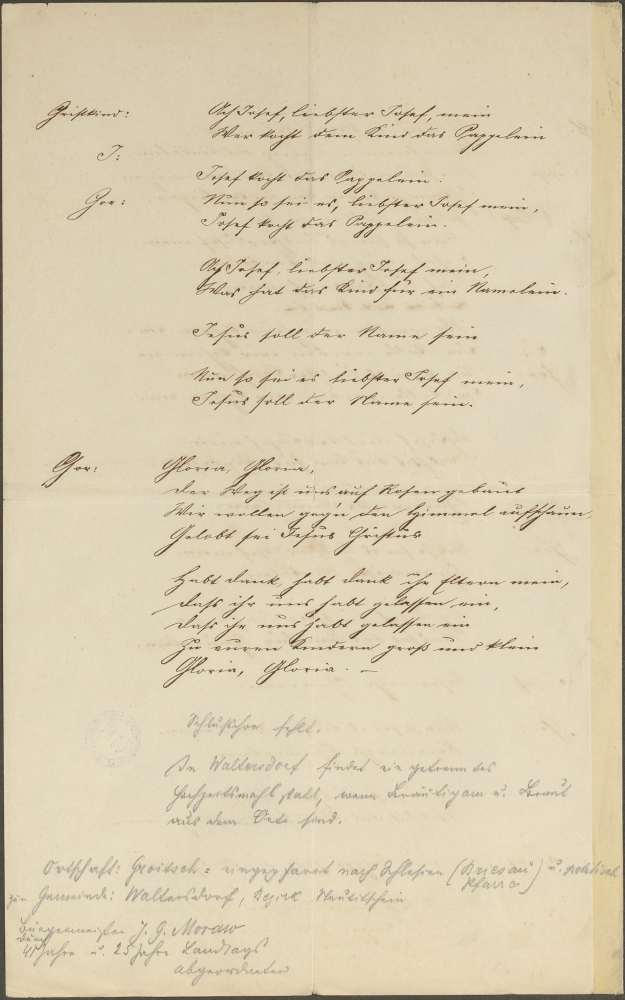 Christkind: Ach Josef, liebster Josef, mein
Wer kocht dem Kind das Pappelein
J: Josef kocht das Pappelein.
Chor: Nun so sei es, liebster Josef mein,
Josef kocht das Pappelein.
Ach Josef, liebster Josef mein,
Was hat das Kind für ein Namelein.
Jesus soll der Name sein
Nun so sei es liebster Josef mein,
Jesus soll der Name sein.
Chor: Gloria, Gloria,
der Weg ist uns auf Rosen gebaut
Wir wollen geg'n den Himmel aufschauen,
Gelobt sei Jesus Christus
Habt dank, habt dank ihr Eltern mein,
dass ihr uns habt gelassen ein,
dass ihr uns habt gelassen ein
Zu euren Kindern groß und klein
Gloria, Gloria. —
Schlußchor fehlt.
In Waltersdorf findet ein getrenntes
Hochzeitsmahl statt, wenn Bräutigam u. Braut
aus dem Orte sind.
Ortschaft: Groitsch = eingepfarrt nach Schlesien ( Pfarre) u. politisch
zur Gemeinde: Waltersdorf, Bezirk Neutitschein
Bürgermeister J. G. Moraw
durch
41 Jahre u. 25 Jahre Landtags
abgeordneter